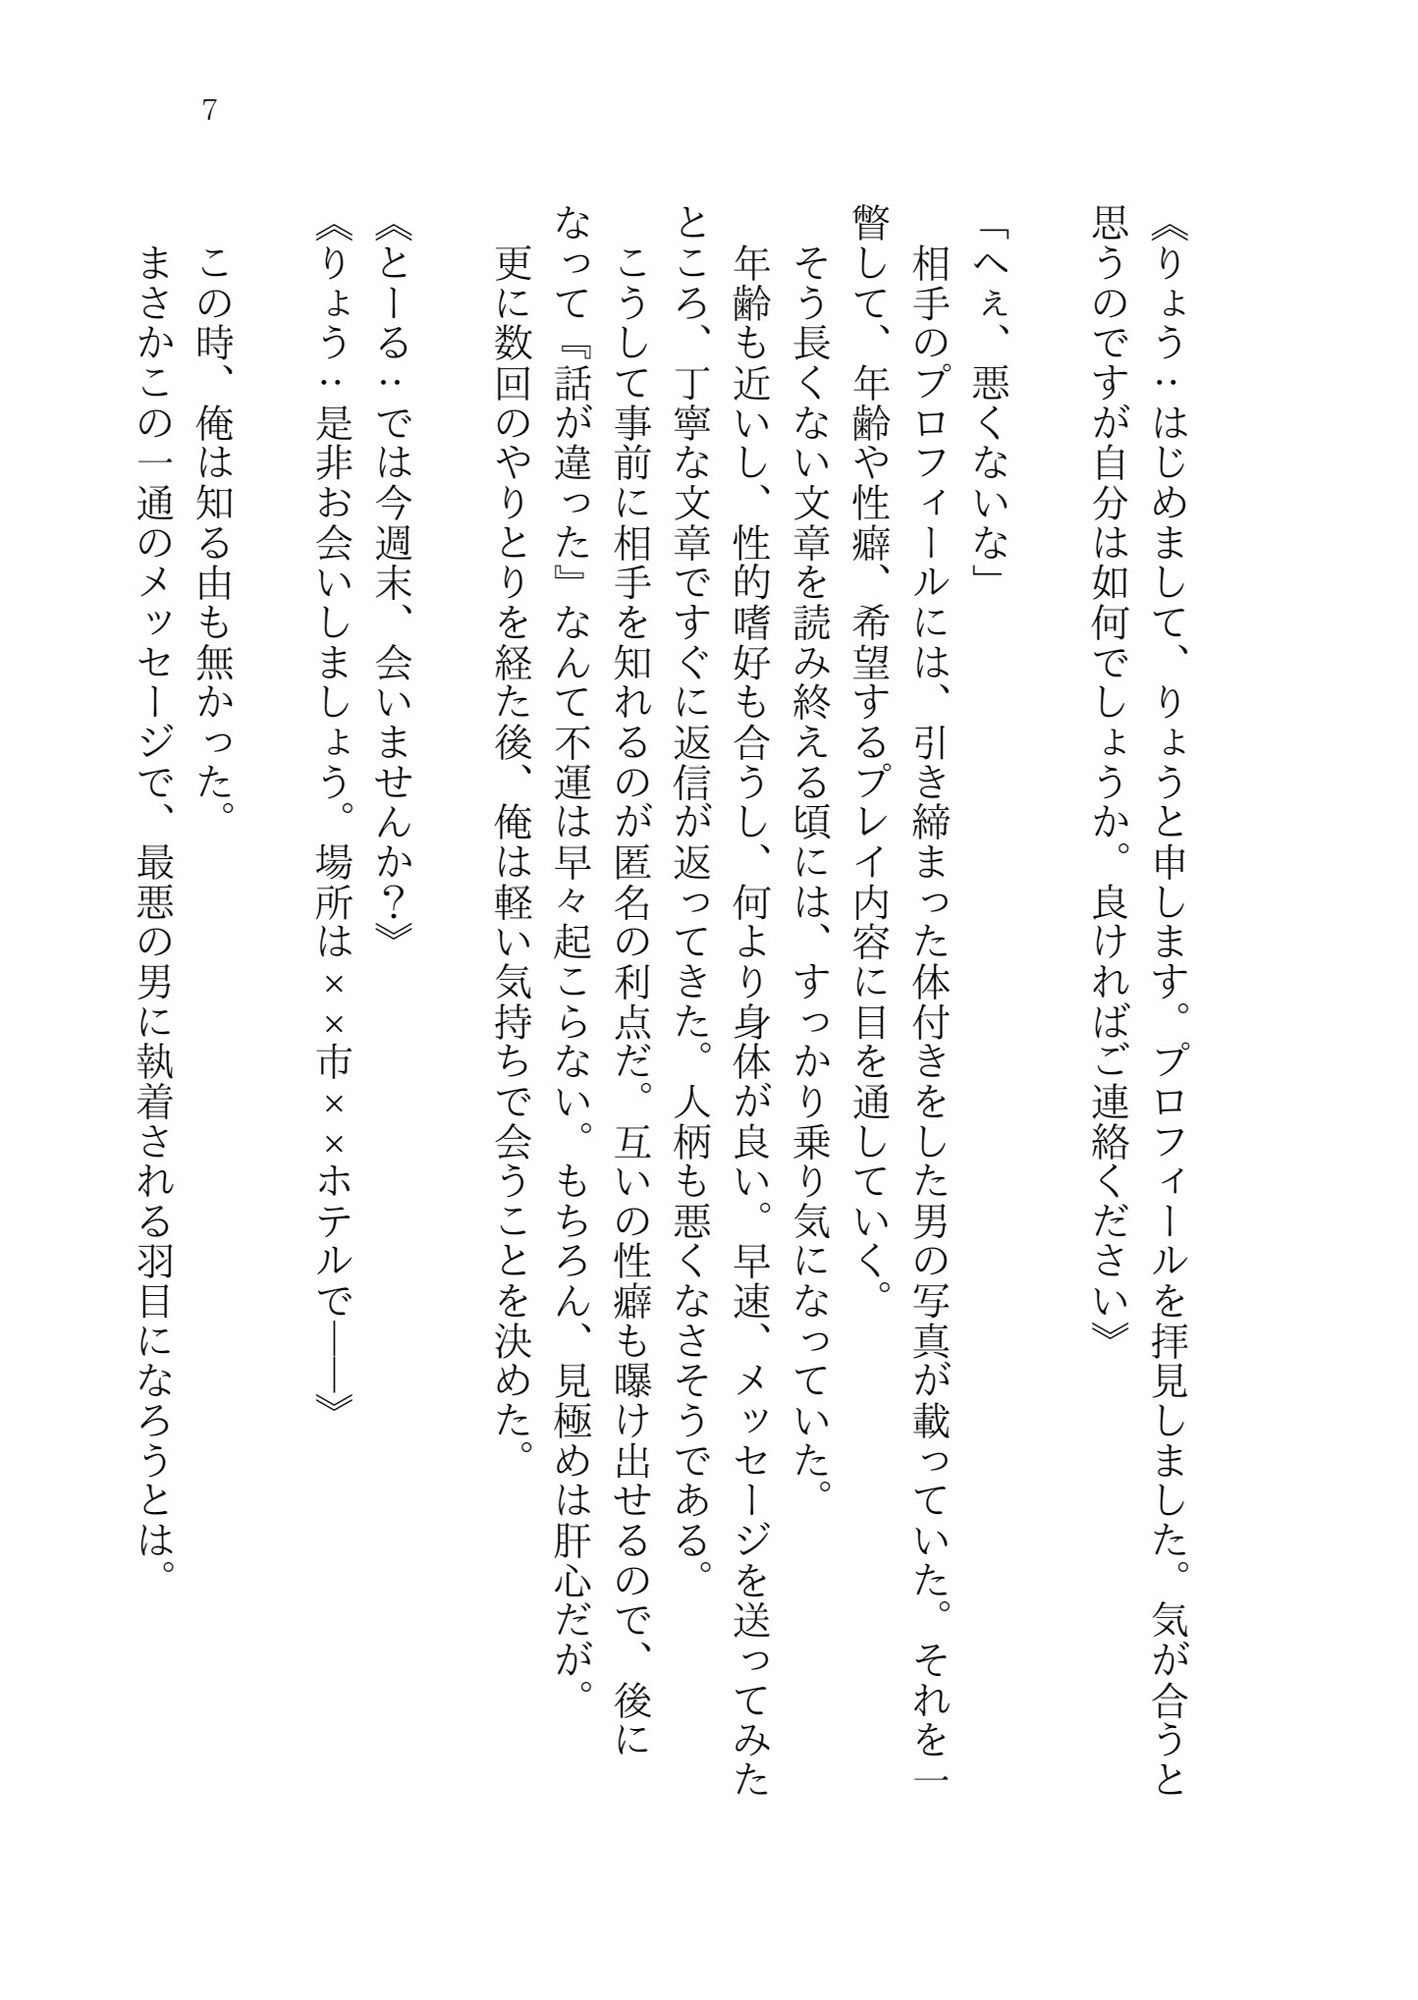 7
《りょう：はじめまして、りょうと申します。プロフィールを拝見しました。気が合うと
思うのですが自分は如何でしょうか。良ければご連絡ください》
「へぇ、悪くないな」
相手のプロフィールには、引き締まった体付きをした男の写真が載っていた。それを一
瞥して、年齢や性癖、希望するプレイ内容に目を通していく。
そう長くない文章を読み終える頃には、すっかり乗り気になっていた。
年齢も近いし、性的嗜好も合うし、何より身体が良い。早速、メッセージを送ってみた
ところ、丁寧な文章ですぐに返信が返ってきた。人柄も悪くなさそうである。
こうして事前に相手を知れるのが匿名の利点だ。互いの性癖も曝け出せるので、後に
なって『話が違った』なんて不運は早々起こらない。もちろん、見極めは肝心だが。
更に数回のやりとりを経た後、俺は軽い気持ちで会うことを決めた。
《とーる：では今週末、会いませんか？》
《りょう：是非お会いしましょう。場所は××市××ホテルで――》
この時、俺は知る由も無かった。
まさかこの一通のメッセージで、最悪の男に執着される羽目になろうとは。